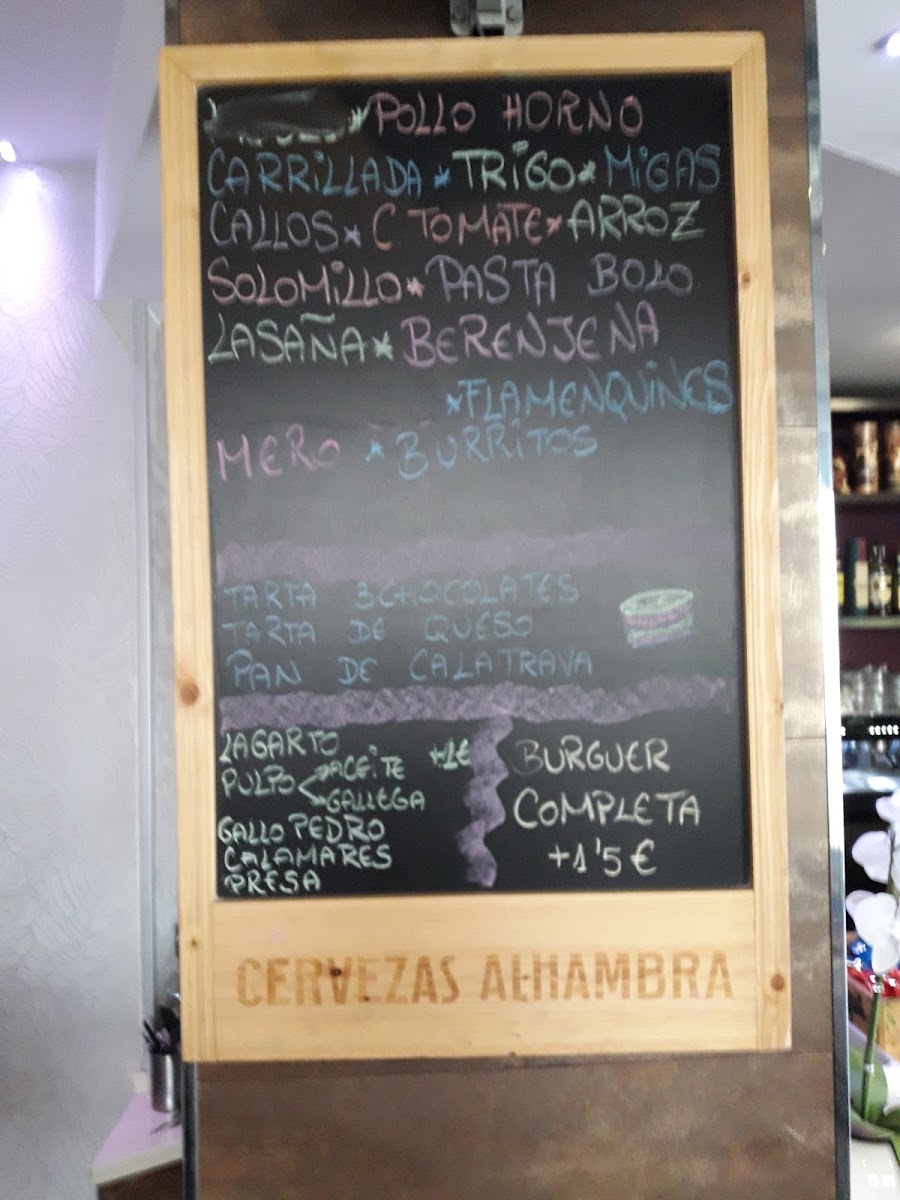 *POLLO HORNO
CARRILLADA * TRIGO * MIGAS
CALLOS * C TOMATE * ARROZ
SOLOMILLO * PASTA BOLO
LASAÑA * BERENJENA
*FLAMENQUINES
MERO * BURRITOS
TARTA 3CHOCOLATES
TARTA DE QUESO
PAN DE CALATRAVA
LAGARTO
PULPO ACEITE +1€
GALLEGA
GALLO PEDRO
CALAMARES
PRESA
BURGUER
COMPLETA
+1'5€
CERVEZAS ALHAMBRA